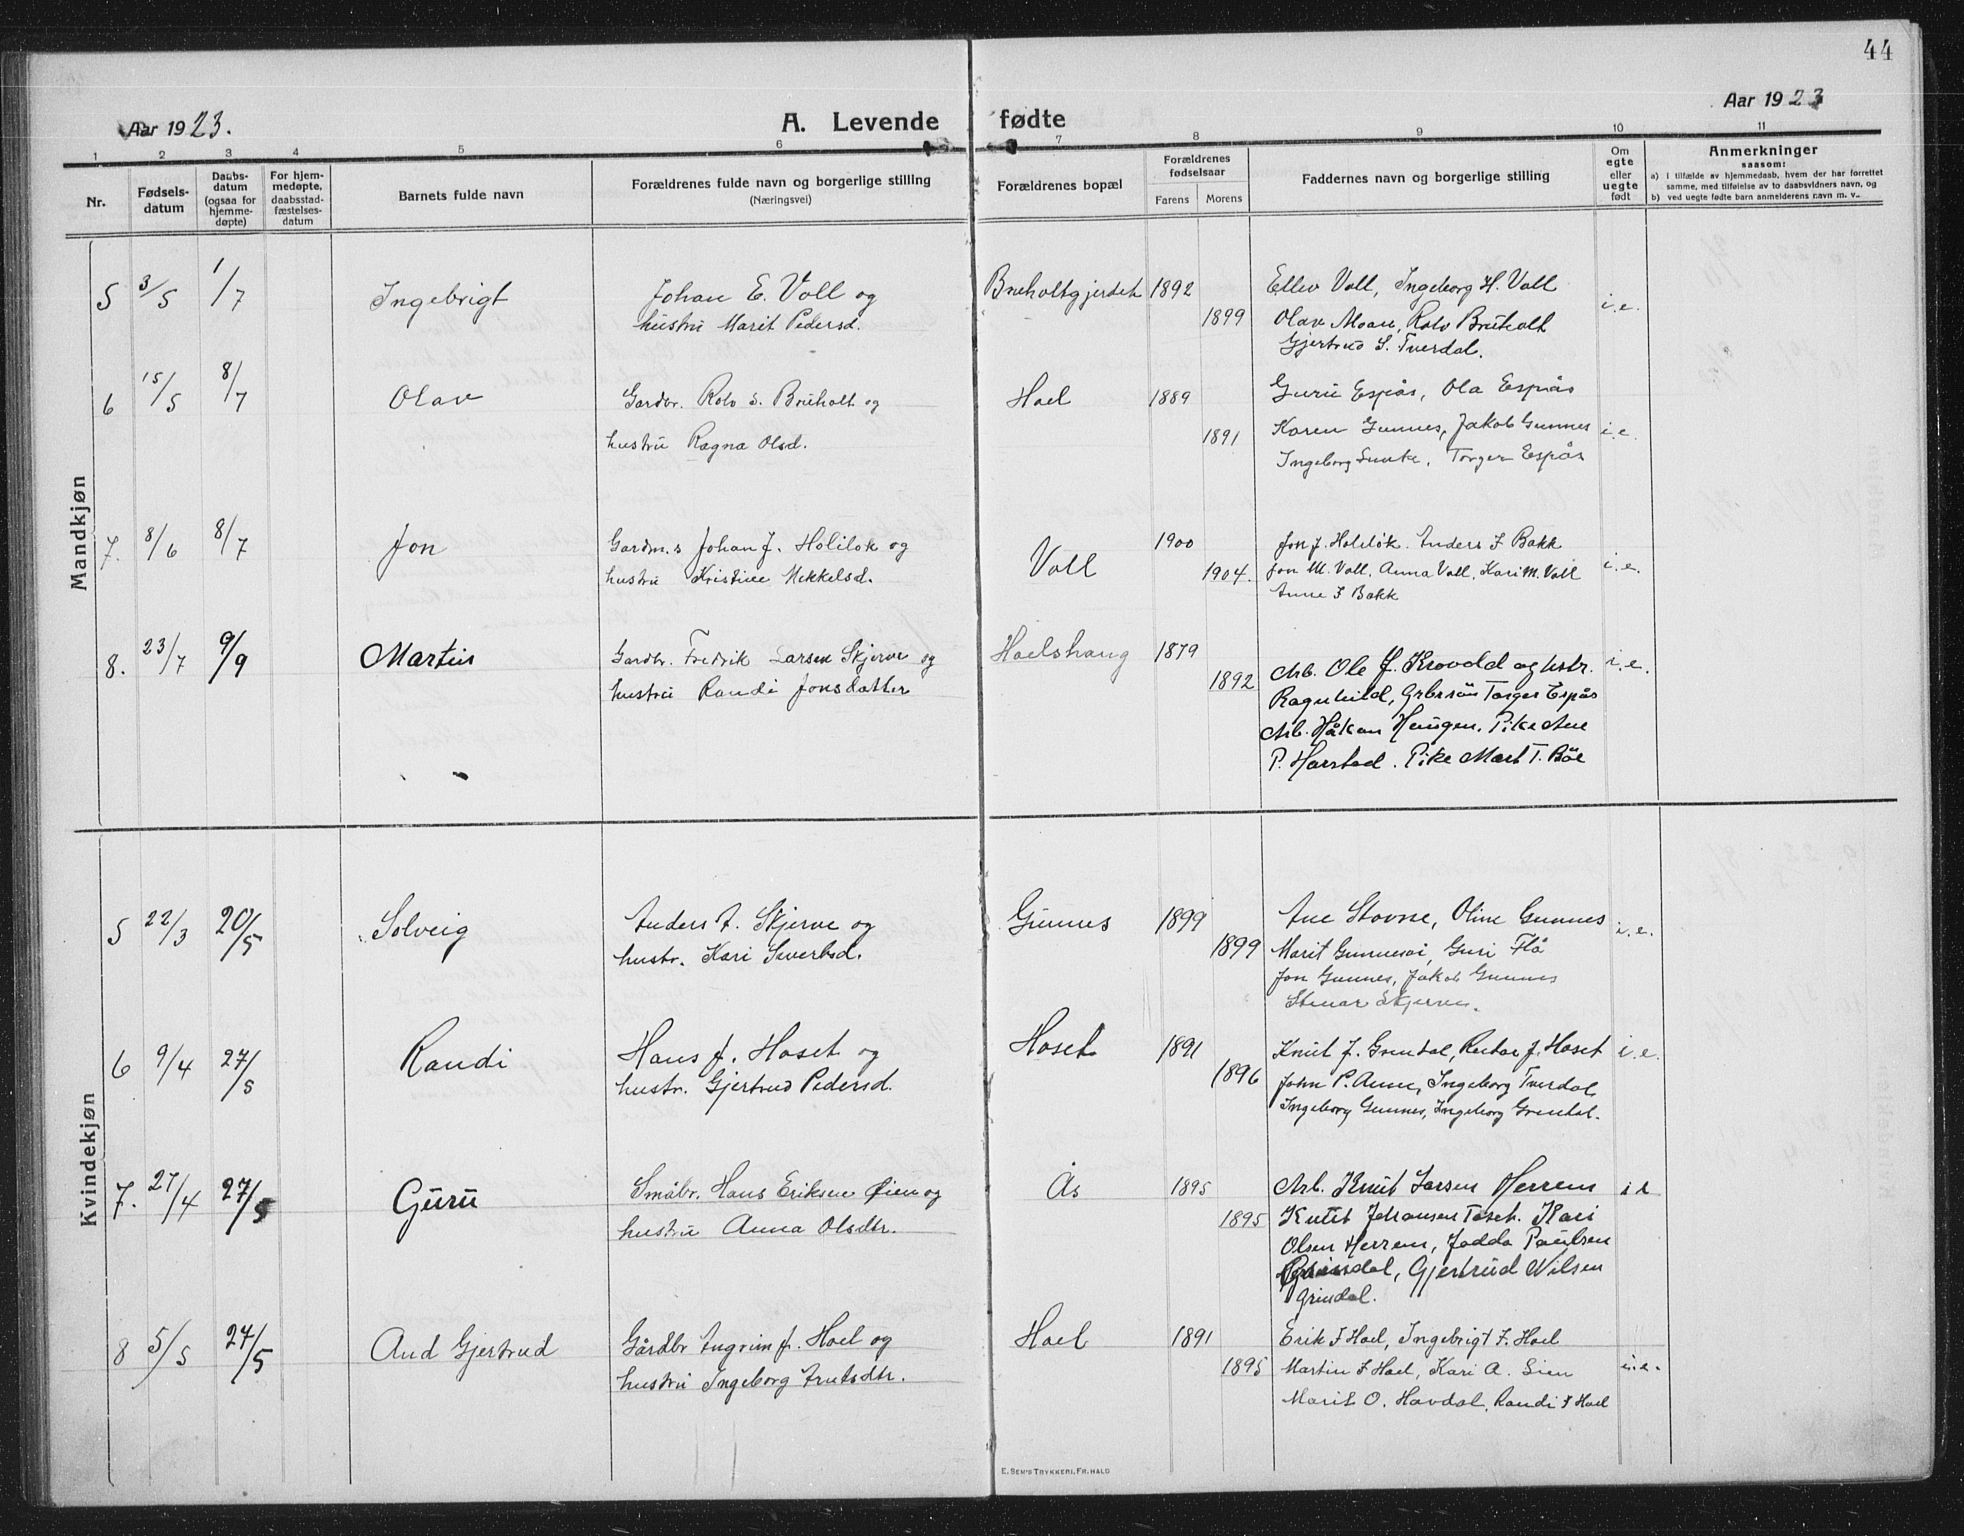 44
Aar 1923.
A. Levende fødte
Aar 1923
1 2 3 4 5 6 7 8 9 10 11
Nr.
Fødsels-
datum
Daabs-
datum
(ogsaa for
hjemme-
døpte)
For hjem-
medøpte,
daabsstad-
fæstelses-
datum
Barnets fulde navn
Forældrenes fulde navn og borgerlige stilling
(Næringsvei)
Forældrenes bopæl
Forældrenes
fødselsaar
Farens Morens
Faddernes navn og borgerlige stilling
Om
egte
eller
uegte
født
Anmerkninger
saasom:
a) I tilfælde av hjemmedaab, hvem der har forrettet
samme, med tilføielse av to daabsvidners navn, og
b) ved uegte fødte barn anmelderens navn m. v..
Mandkjøn
5 3/5 1/7 Ingebrigt
Johan E. Voll og
hustru Marit Pedersd.
Bruholtgjerdet 1892
1899
Ellev Voll, Ingeborg H. Voll
Olav Moan, Rolv Bruholt
Gjertrud S. Tverdal.
i.e.
6 15/5 8/7 Olav
Gardbr. Rolv S. Bruholt og
hustru Ragna Olsd.
Hoel 1889
1891
Guru Espås, Ola Espås
Karen Gunnes, Jakob Gunnes
Ingeborg Torger Espås
i.e.
7. 8/6 8/7 Jon
Gardm.s Johan J. Holiløk og
hustru Kristine Mikkelsd.
Voll 1900
1904.
Jon J. Holiløk. Anders I Bakk
Jon M. Voll, Anna Voll, Kari M. Voll
Anne I Bakk
i.e.
8. 23/7 9/9 Martin
Gardbr. Fredrik Larsen Skjerve og
hustru Randi Jonsdatter
Hoelshaug 1879
1892
Arb. Ole J. Krovold og hstr.
Ragnhild, Torger Espås
Arb. Håkan Haugen. Pike Ane
P. Harstad. Pike Marit T. Böe
i.e.
Kvindekjøn
5 22/3 20/5 Solveig
Anders A. Skjerve og
hustr. Kari Sivertsd.
Gunnes 1899
1899
Ane Stovne, Oline Gunnes
Marit Guri Flå
Jon Gunnes, Jakob Gunnes
Steinar Skjerve.
i.e.
6 9/4 27/5 Randi
Hans J. Hoset og
hustr. Gjertrud Pedersd.
Hoset 1891
1896
Knut J. Grendal, J. Hoset
John P. Aune, Ingeborg Tverdal
Ingeborg Gunnes, Ingeborg Grendal.
i.e.
7. 27/4 27/5 Guru
Småbr. Hans Eriksen Øien og
hustru Anna Olsdtr.
Ås 1895
1895
Arb. Knut Larsen Herrem
Knut Johansen Kari
Olsen Herrem, Jodda Paulsen
Grindal, Gjertrud Nilsen
Grindal.
i e
8 5/5 27/5 Aud Gjertrud
Gårdbr Angrim J. Hoel og
hustru Ingeborg Arntsdtr.
Hoel 1891
1895
Erik I Hoel, Ingebrigt F. Hoel
Martin I Hoel, Kari A. Lien
Marit O. Havdal, Randi I Hoel
i.e.
E. SEM'S TRYKKERI, FR.HALD